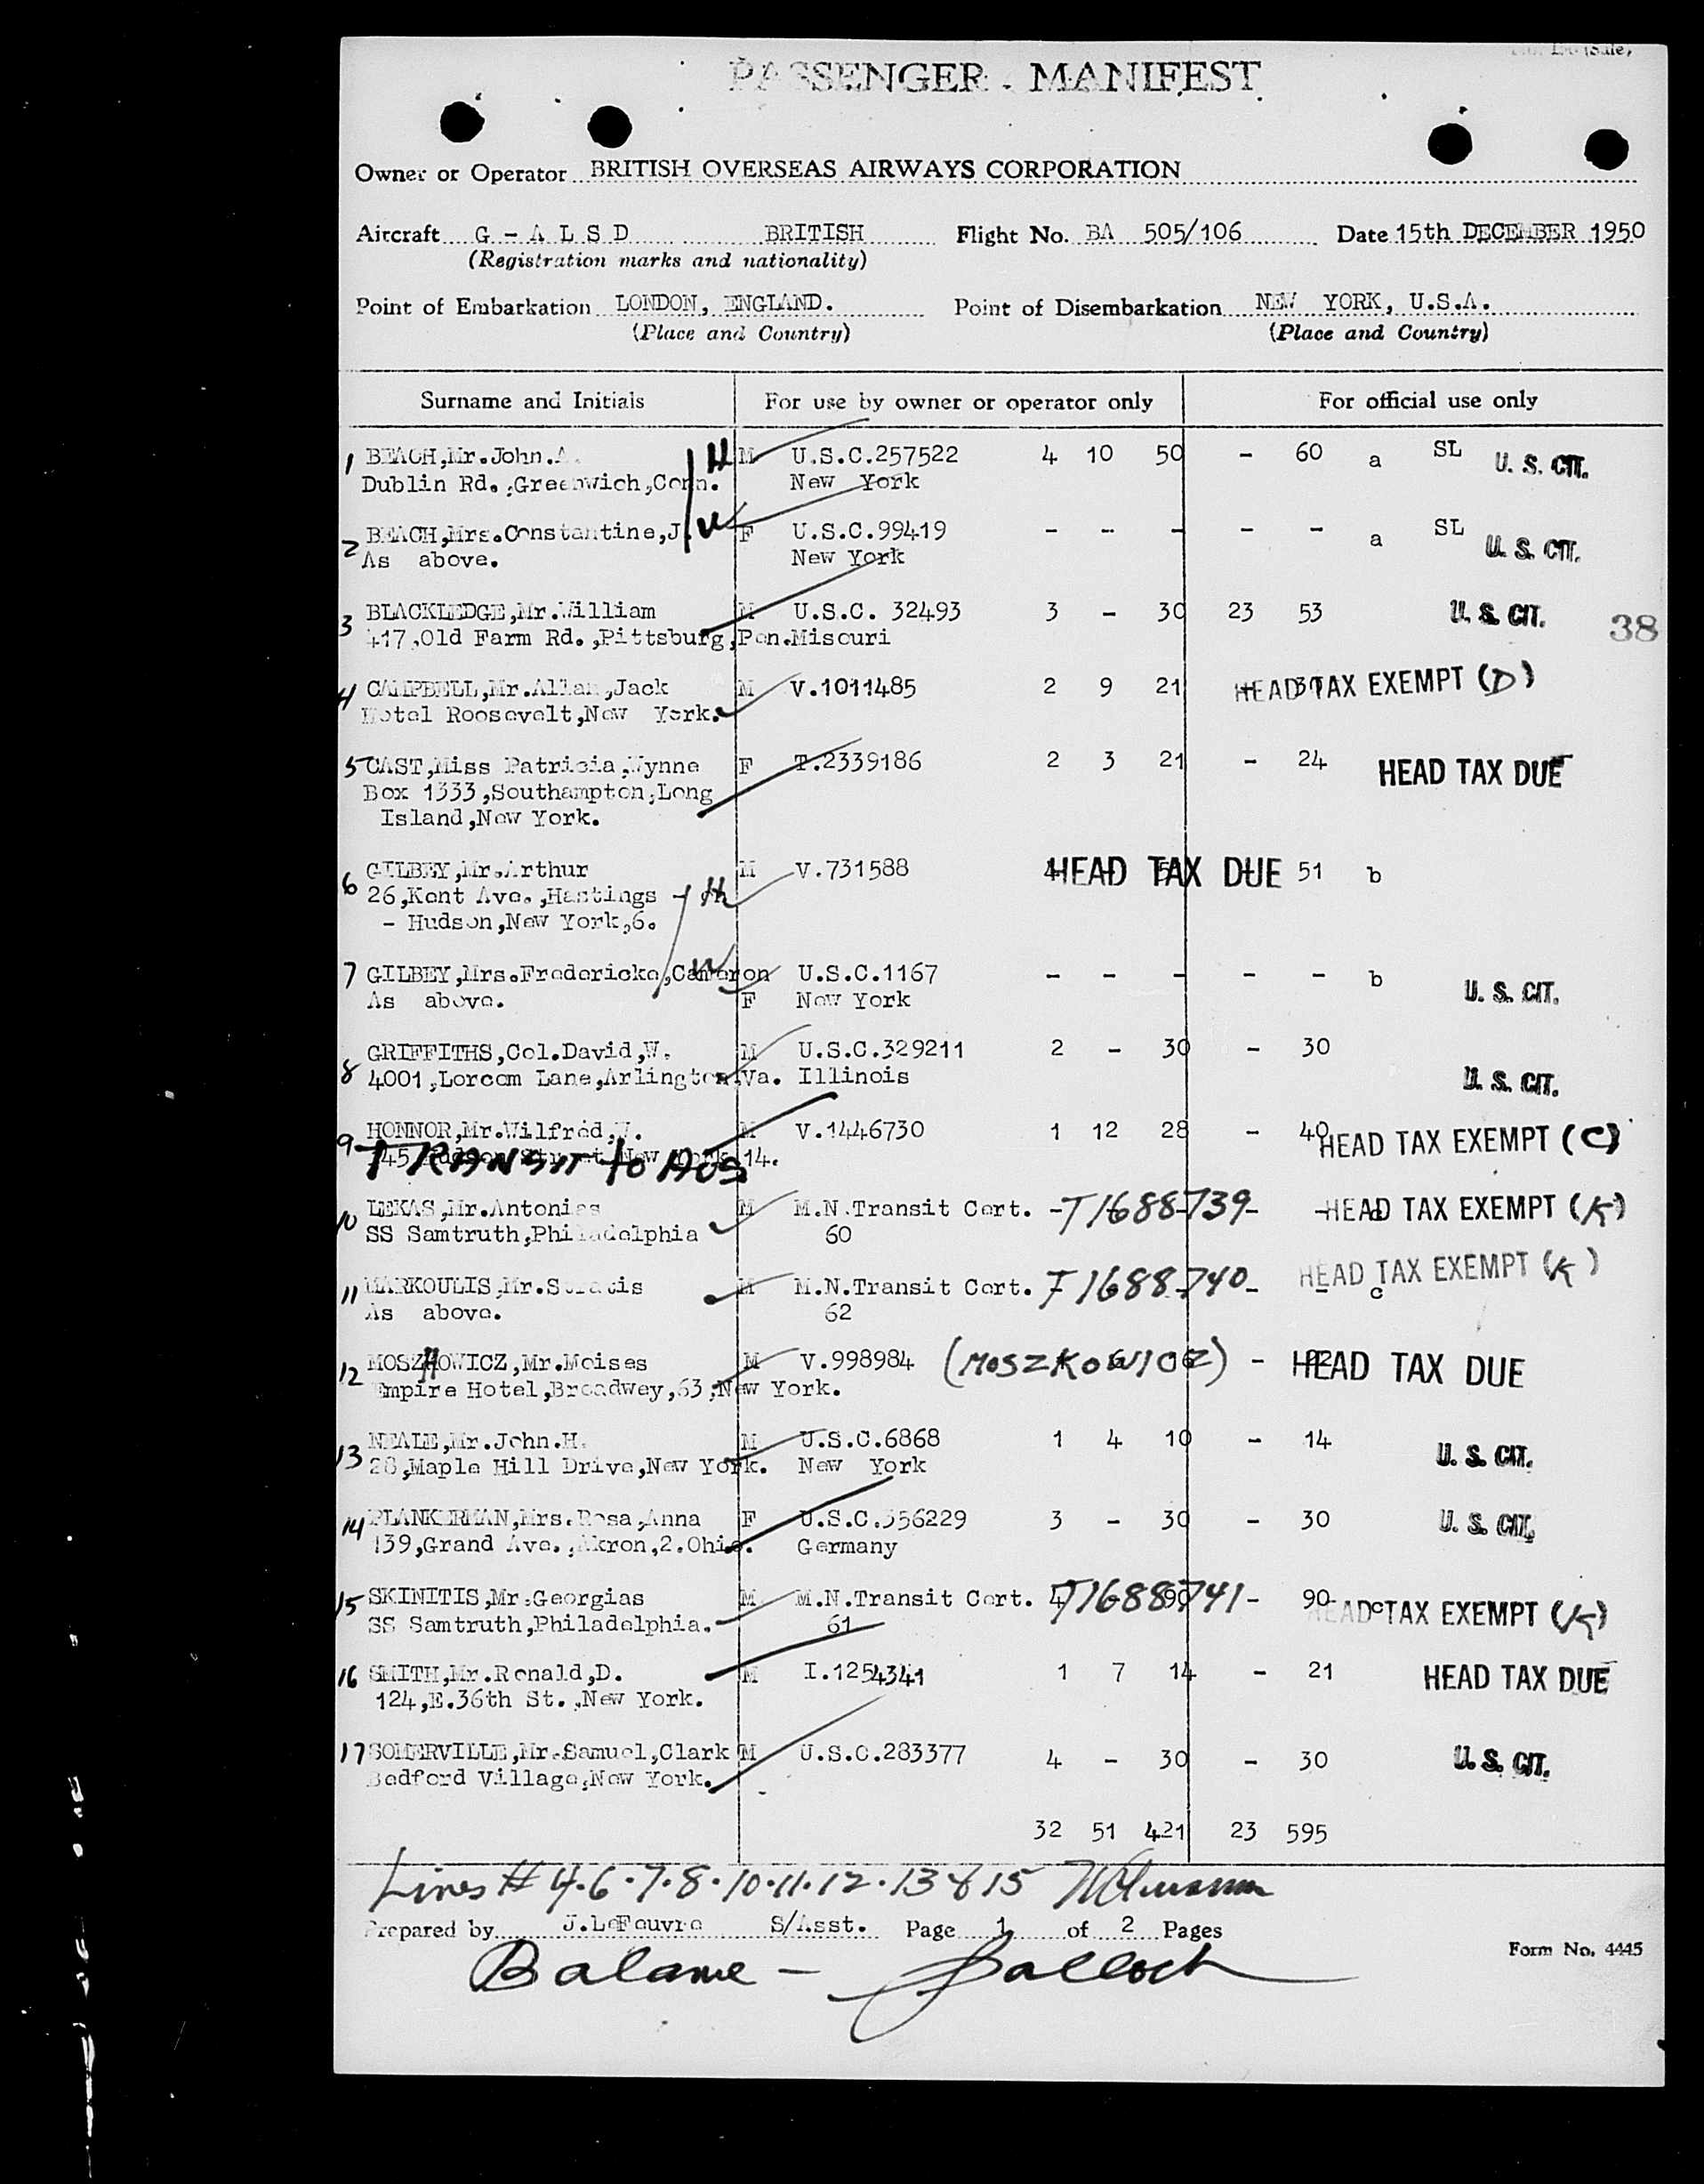 PASSENGER . MANIFEST
Owner or Operator BRITISH OVERSEAS AIRWAYS CORPORATION
Aircraft G - A L S D BRITISH Flight No. BA 505/106 Date 15th DECEMBER 1950
(Registration marks and nationality)
Point of Embarkation LONDON, ENGLAND. Point of Disembarkation NEW YORK, U.S.A.
(Place and Country) (Place and Country)
Surname and Initials For use by owner or operator only For official use only
1 BEACH,Mr.John.A. H M U.S.C.257522 4 10 50 - 60 a SL U. S. CIT.
Dublin Rd.,Greenwich,Conn. New York
2 BEACH,Mrs.Constantine,J. W F U.S.C.99419 - - - - - a SL U. S. CIT.
As above. New York
3 BLACKLEDGE,Mr.William M U.S.C. 32493 3 - 30 23 53 U. S. CIT. 38
417,Old Farm Rd.,Pittsburg,Pen.Misouri
4 CAMPBELL,Mr.Allan,Jack M V.1011485 2 9 21 HEAD TAX EXEMPT (D)
Hotel Roosevelt,New York.
5 CAST,Miss Patricia,Wynne F T.2339186 2 3 21 - 24 HEAD TAX DUE
Box 1333,Southampton,Long
Island,New York.
6 GILBEY,Mr.Arthur M V.731588 4 HEAD TAX DUE 51 b
26,Kent Ave.,Hastings - H
- Hudson,New York,6.
7 GILBEY,Mrs.Fredericke,Cameron W U.S.C.1167 - - - - - b U. S. CIT.
As above. F New York
8 GRIFFITHS,Col.David,W. M U.S.C.329211 2 - 30 - 30
4001,Lorcom Lane,Arlington.Va. Illinois U. S. CIT.
9 HONNOR,Mr.Wilfred,W. M V.1446730 1 12 28 - 40 HEAD TAX EXEMPT (C)
345 Hudson Street New York 14.
TRANSIT to AUS
10 LEKAS,Mr.Antonias M M.N.Transit Cert. T1688739 HEAD TAX EXEMPT (K)
SS Samtruth,Philadelphia 60
11 MARKOULIS,Mr.Stratis M M.N.Transit Cert. T1688740 - c HEAD TAX EXEMPT (K)
As above. 62
12 MOSZHOWICZ,Mr.Moises M V.998984 (MOSZKOWICZ) - HEAD TAX DUE
Empire Hotel,Broadwey,63,New York.
13 NEALE,Mr.John.H. M U.S.C.6868 1 4 10 - 14 U. S. CIT.
28,Maple Hill Drive,New York. New York
14 PLANKERMAN,Mrs.Rosa,Anna F U.S.C.356229 3 - 30 - 30 U. S. CIT.
139,Grand Ave.,Akron,2.Ohio. Germany
15 SKINITIS,Mr.Georgias M M.N.Transit Cert. T1688741 - 90 c HEAD TAX EXEMPT (K)
SS Samtruth,Philadelphia. 61
16 SMITH,Mr.Ronald,D. M I.1254341 1 7 14 - 21 HEAD TAX DUE
124,E.36th St.,New York.
17 SOMERVILLE,Mr.Samuel,Clark M U.S.C.283377 4 - 30 - 30 U. S. CIT.
Bedford Village,New York.
32 51 421 23 595
Lines # 4.6.7.8.10.11.12.13 & 15
Prepared by J.LeFeuvre S/Asst. Page 1 of 2 Pages
Form No. 4445
Balance -